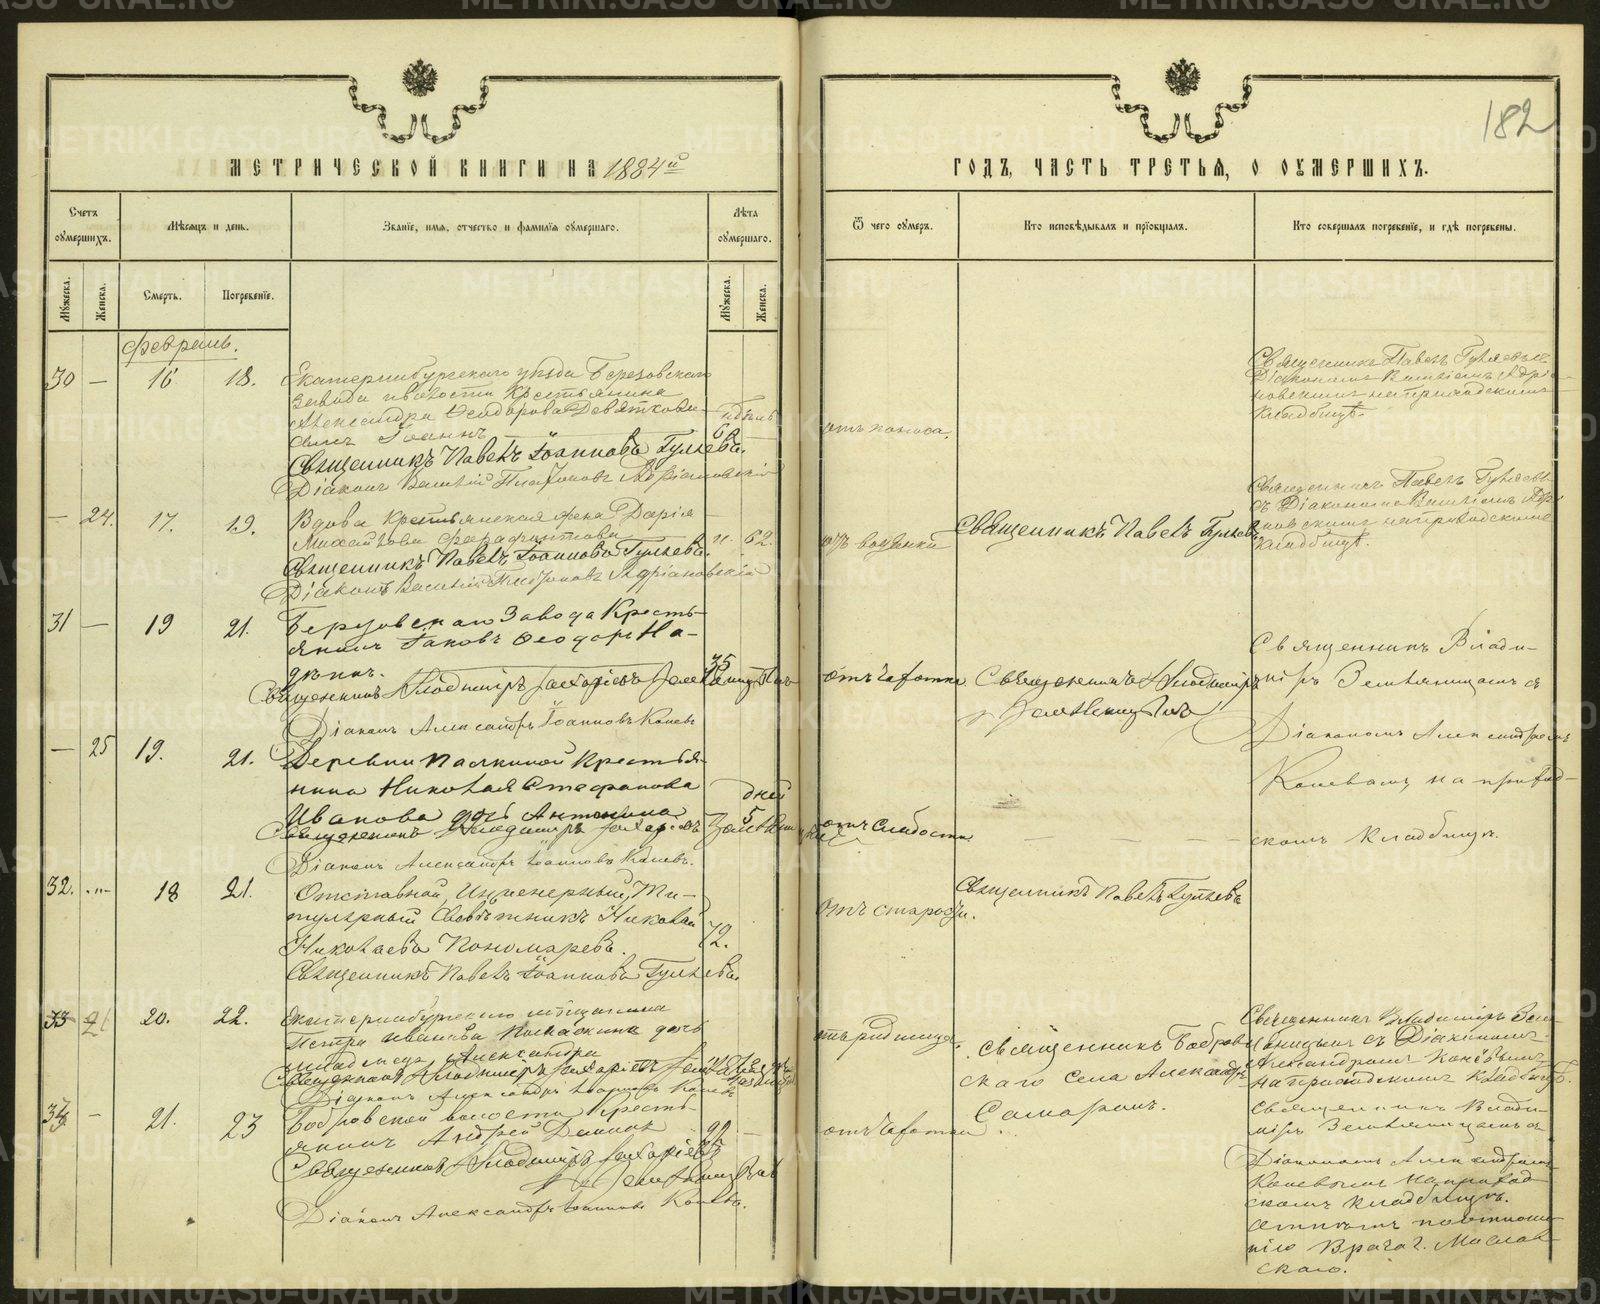 182
МЕТРИЧЕСКОЙ КНИГИ НА 1884й
ГОДЪ, ЧАСТЬ ТРЕТЬЯ, О ОУМЕРШИХЪ.
Счетъ оумершихъ.
Мѣсяцъ и день.
Званіе, имя, отчество и фамилія оумершаго.
Лѣта оумершаго.
Ѿ чего оумеръ.
Кто исповѣдывалъ и пріобщалъ.
Кто совершалъ погребеніе, и гдѣ погребены.
Мужеска.
Женска.
Смерть.
Погребеніе.
Мужеска.
Женска.
Февраль.
30 — 16 18.
Екатеринбургскаго уѣзда Березовскаго
завода волости Крестьянина
Александра Ѳеодорова Девяткова
сынъ Іоаннъ
6
отъ поноса.
Священникъ Павелъ Гуляевъ съ
Діакономъ Василіемъ Адріа-
новскимъ на приходскомъ
кладбищѣ.
Священникъ Павелъ Іоанновъ Гуляевъ.
Діаконъ Василій Платоновъ Адріановскій
— 24. 17. 19.
Вдова крестьянская жена Дарія
Михайлова
62.
отъ водянки
Священникъ Павелъ Гуляевъ
Священникъ Павелъ Гуляевъ
съ Діакономъ Василіемъ Адріа-
новскимъ на приходскомъ
кладбищѣ.
Священникъ Павелъ Іоанновъ Гуляевъ.
Діаконъ Василій Платоновъ Адріановскій
31 — 19 21.
Березовскаго Завода Кресть-
янинъ Іаковъ Ѳеодоровъ
35
отъ чахотки
Священникъ Владиміръ
Земляницынъ
Священникъ Влади-
міръ Земляницынъ съ
Діакономъ Александромъ
Коневымъ на приход-
скомъ кладбищѣ.
Священникъ Владиміръ Захаріевъ Земляницынъ
Діаконъ Александръ Іоанновъ Коневъ
— 25 19. 21.
Деревни Палкиной Крестья-
нина Николая Стефанова
Иванова дочь Антонина
дней
5
отъ слабости
— — —
Священникъ Владиміръ Захаріевъ Земляницынъ
Діаконъ Александръ Іоанновъ Коневъ.
32. „ 18 21.
Отставной Инженерный Ти-
тулярный Совѣтникъ Николай
Николаевъ Пономаревъ.
72.
отъ старости.
Священникъ Павелъ Гуляевъ
Священникъ Павелъ Іоанновъ Гуляевъ.
33 20. 22.
Екатеринбургскаго мѣщанина
Петра Иванова дочь
младенецъ Александра
отъ родимца.
Священникъ Владиміръ Зем-
ляницынъ съ Діакономъ
Александромъ Коневымъ
на приходскомъ кладбищѣ.
Священникъ Владиміръ Захаріевъ Земляницынъ
Діаконъ Александръ Іоанновъ Коневъ
— 21. 23
Бобровской волости кресть-
янинъ Андрей
отъ чахотки
Священникъ Бобров-
скаго села Александръ
Священникъ Влади-
міръ Земляницынъ съ
Діакономъ Александромъ
Коневымъ на приход-
скомъ кладбищѣ.
Врача
Священникъ Владиміръ Захаріевъ
Земляницынъ
Діаконъ Александръ Іоанновъ Коневъ.
METRIKI.GASO-URAL.RU